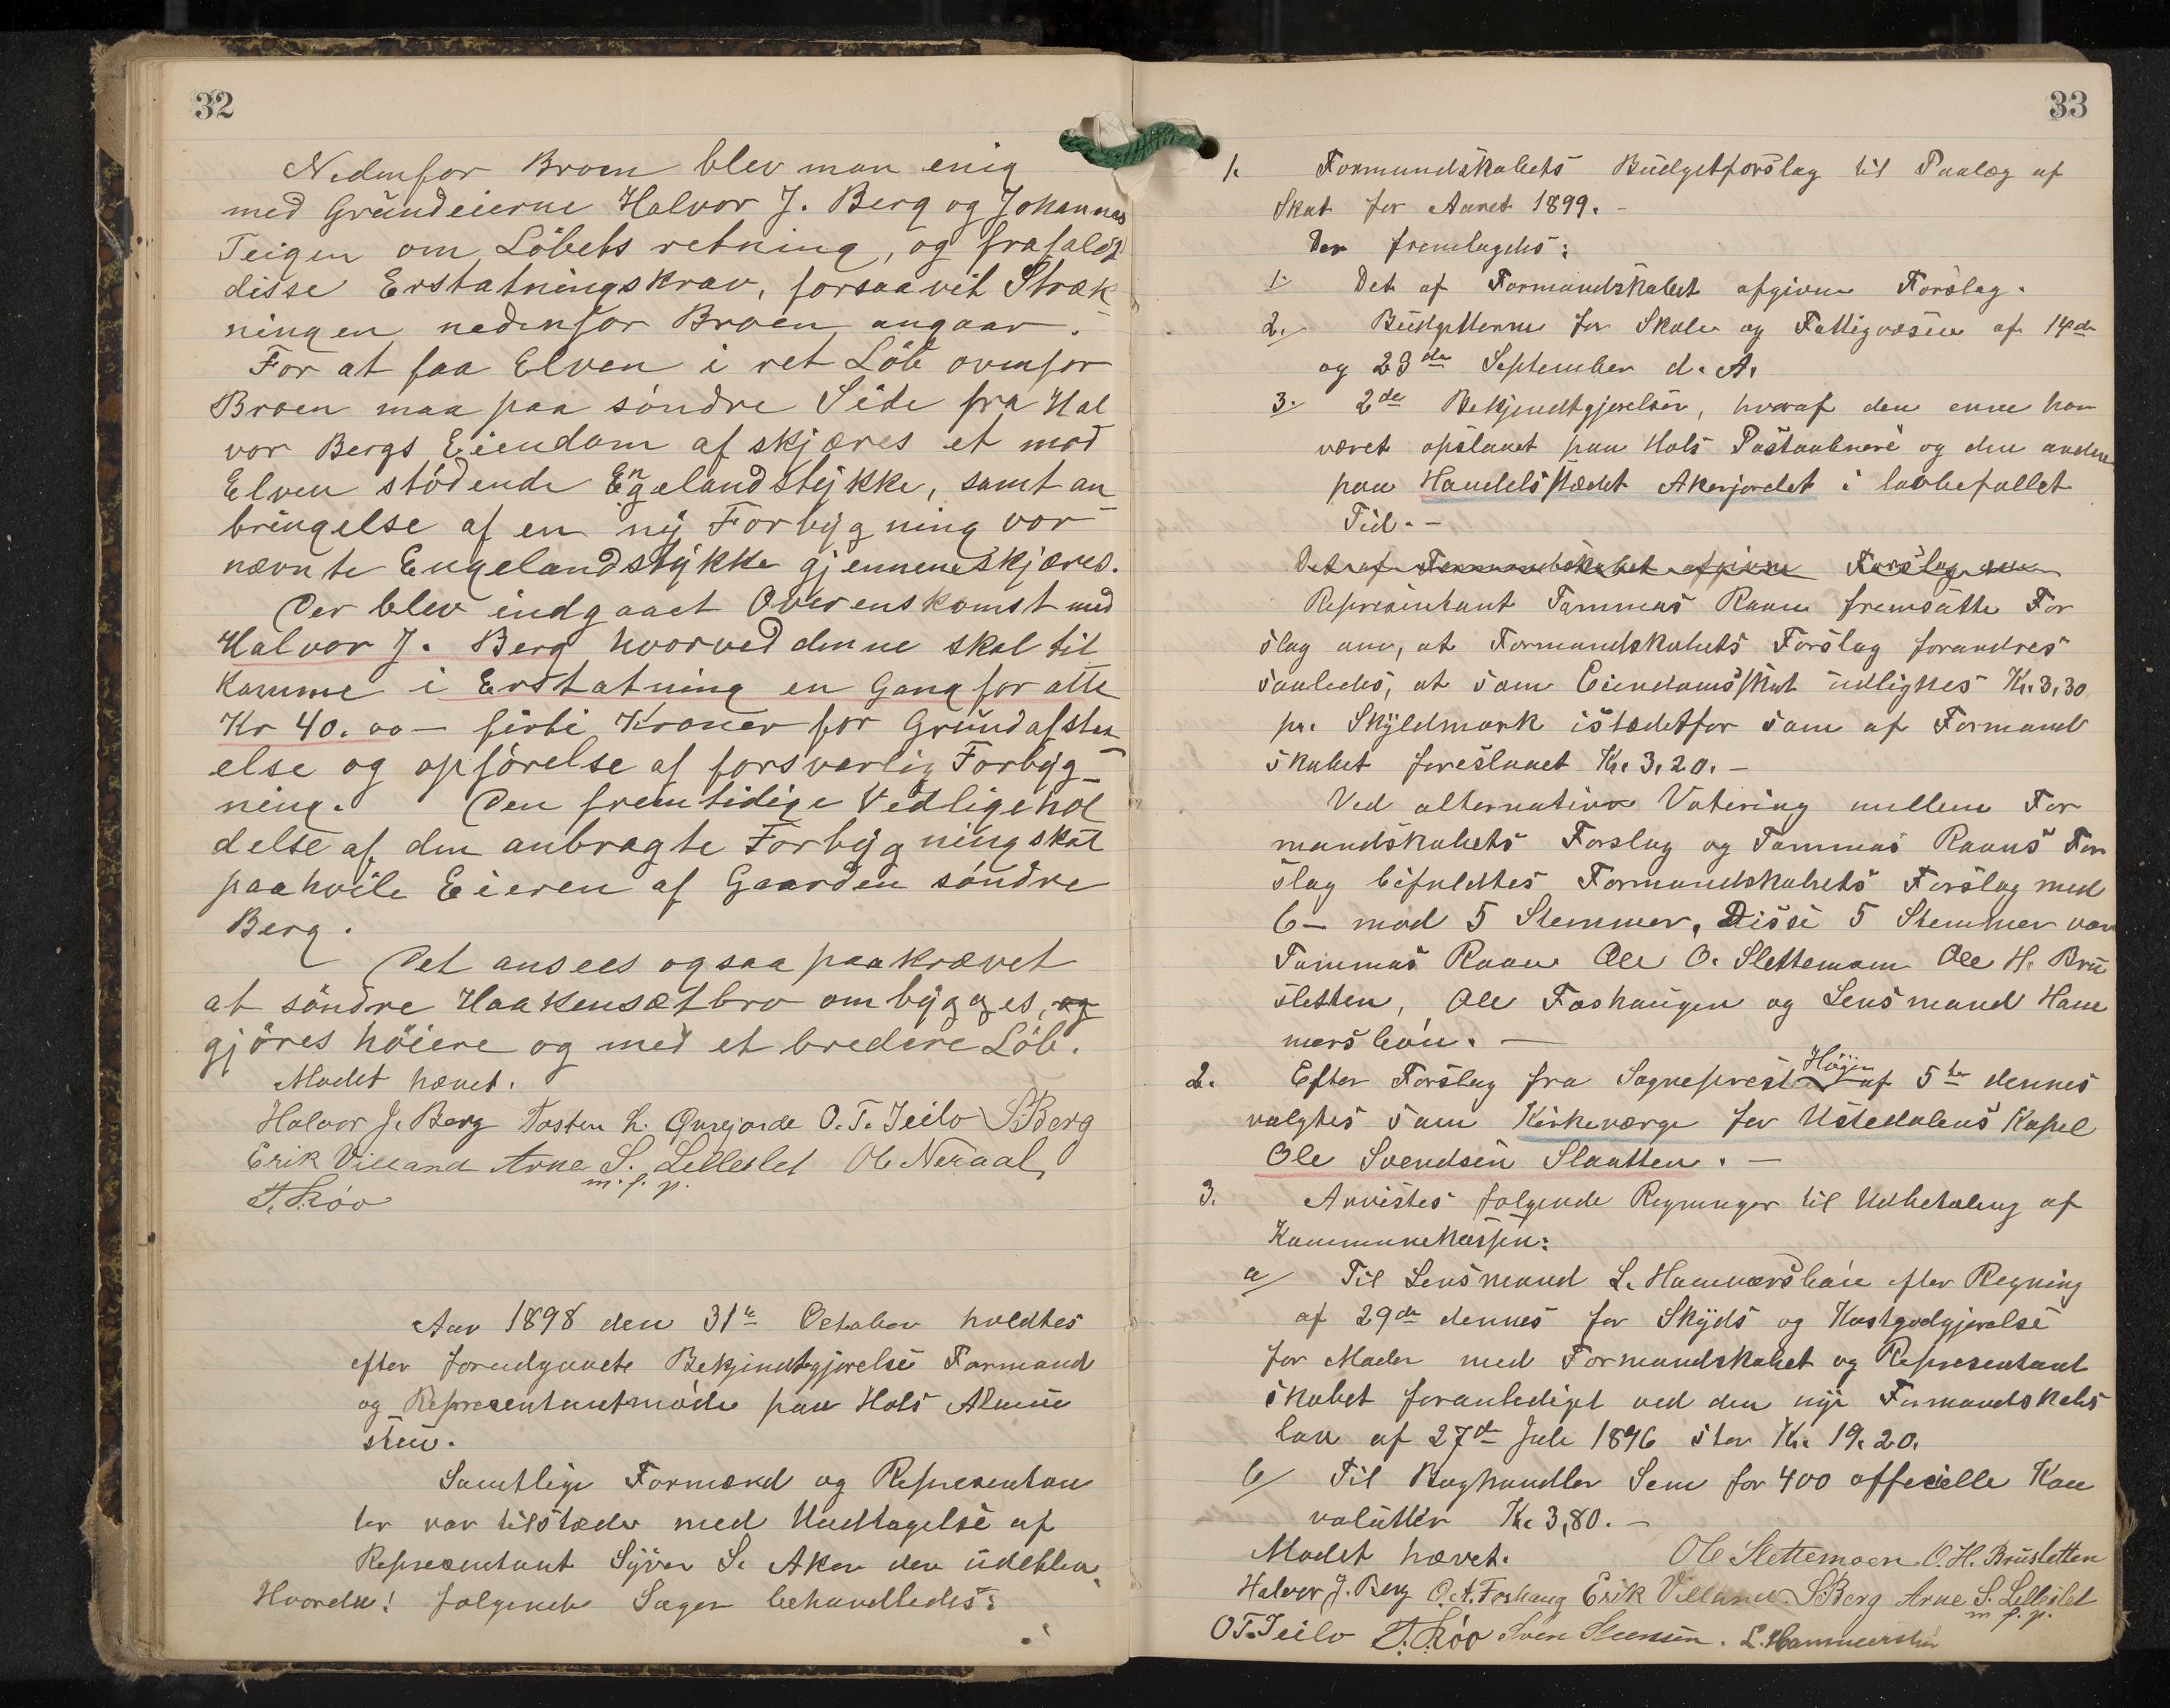 32
Nedenfor Broen blev man enig
med Gründeierne Halvor J. Berg og Johannes
Teigen om Löbets retning, og frafaldt
disse Erstatningskrav, forsaavit Stræk
ningen nedenfor Broen angaar.
For at faa Elven i ret Löb ovenfor
Broen maa paa söndre Side fra Hal
vor Bergs Eiendom afskjæres et mod
Elven stödende Engelandstykke, samt an
bringelse af en ny Forbygning vor
nævnte Engelandstykke gjennemskjæres.
Der blev indgaaet Overenskomst med
Halvor J. Berg hvorved denne skal til
komme i Erstatning en Gang for alle
Kr 40.00 – firti Kroner for Gründafstaa
else og opförelse af forsvarlig Forbyg
ning. Den fremtidige Vedligehol
delse af den anbragte Forbygning skal
paahvile Eieren af Gaarden söndre
Berg.
Det ansees ogsaa paakrævet
at söndre Haakensætbro ombygges, og
gjöres höiere og med et bredere Löb.
Mødet hævet.
Halvor J. Berg Tosten L. Øvrejorde O.T. Jeilo S. Berg
Erik Villand Arne S. Lilleslet Ole Neraal
m.f.p.
T. Róo
Aar 1898 den 31te October holdtes
efter forudgaaete Bekjendtgjørelse Formand
og Representantmöde paa Hols Almue
stue.
Samtlige Formænd og Representan
ter var tilstæde med Undtagelse af
Representant Syver S. Aker der udeblev.
Hvorda! følgende Sager behandledes:
33
1. Formandskabets Büdgetforslag til Paalæg af
Skat for Aaret 1899. –
Der fremlagdes:
1. Det af Formandskabet afgivne Forslag.
2. Büdgetterne for Skole og Fattigvæsen af 14de
og 23de September d. A.
3. 2de Bekjendtgjørelser, hvoraf den enne har
været opslaaet paa Hols Postaabneri og den anden
paa Handelsstædet Akerjordet i lovbefallet
Tid. –
Det af Formandskabet afgivne Forslag
Representant Tommas Raaen fremsatte For
slag om, at Formandskabets Forslag forandres
saaledes, at som Eiendomsskat udlignes Kr. 3,30
pr. Skyldmark istædetfor som af Formand
skabet foreslaaet Kr. 3,20. –
Ved alternativ Votering mellem For
mandskabets Forslag og Tommas Raaens For
slag bifaldtes Formandskabets Forslag med
6 – mod 5 Stemmer. Disse 5 Stemmer var
Tommas Raaen Ole O. Slettemoen Ole H. Brü
sletten, Ole Foshaugen og Lensmand Ham
mersbóen. –
2. Efter Forslag fra Sogneprest Högin af 5te dennes
valgtes som Kirkeværge for Ustedalens Kapel
Ole Svendsen Slaatten. –
3. Anvistes følgende Regninger til Udbetaling af
Kommunekassen:
a/ Til Lensmand L. Hammersbóen efter Regning
af 29de dennes for Skyds og Kostgodgjørelse
for Møder med Formandskabet og Representant
skabet foranlediget ved den nye Formandskabs
lov af 27de Juli 1896 stor Kr. 19.20.
b/ Til Boghandler Sem for 400 officielle Kon
volutter Kr. 3,80. –
Mødet hævet. Ole Slettemoen O.H. Brüsletten
Halvor J. Berg O.A. Foshaug Erik Villand S. Berg Arne S. Lilleslet
m f. p.
O.T. Jeilo T. Róo Sven Steensen. L. Hammersbóen